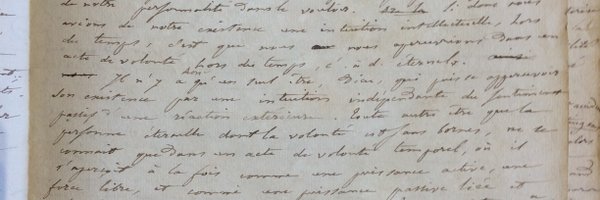 de notre personnalité dans le vouloir. Si donc nous
avions de notre existence une intuition intellectuelle, hors
du temps, c'est que nous nous apercevrions dans un
acte de volonté hors du temps, c. à d. éternel.
Il n'y a qu'un seul être, Dieu, qui puisse appercevoir
son existence par une intuition indépendante du sentiment
passif d'une réaction extérieure. Toute autre être que la
personne éternelle dont la volonté est sans bornes, ne se
connait que dans un acte de volonté temporel, où il
s'aperçoit à la fois comme une puissance active, une
force libre, et comme une puissance passive liée et